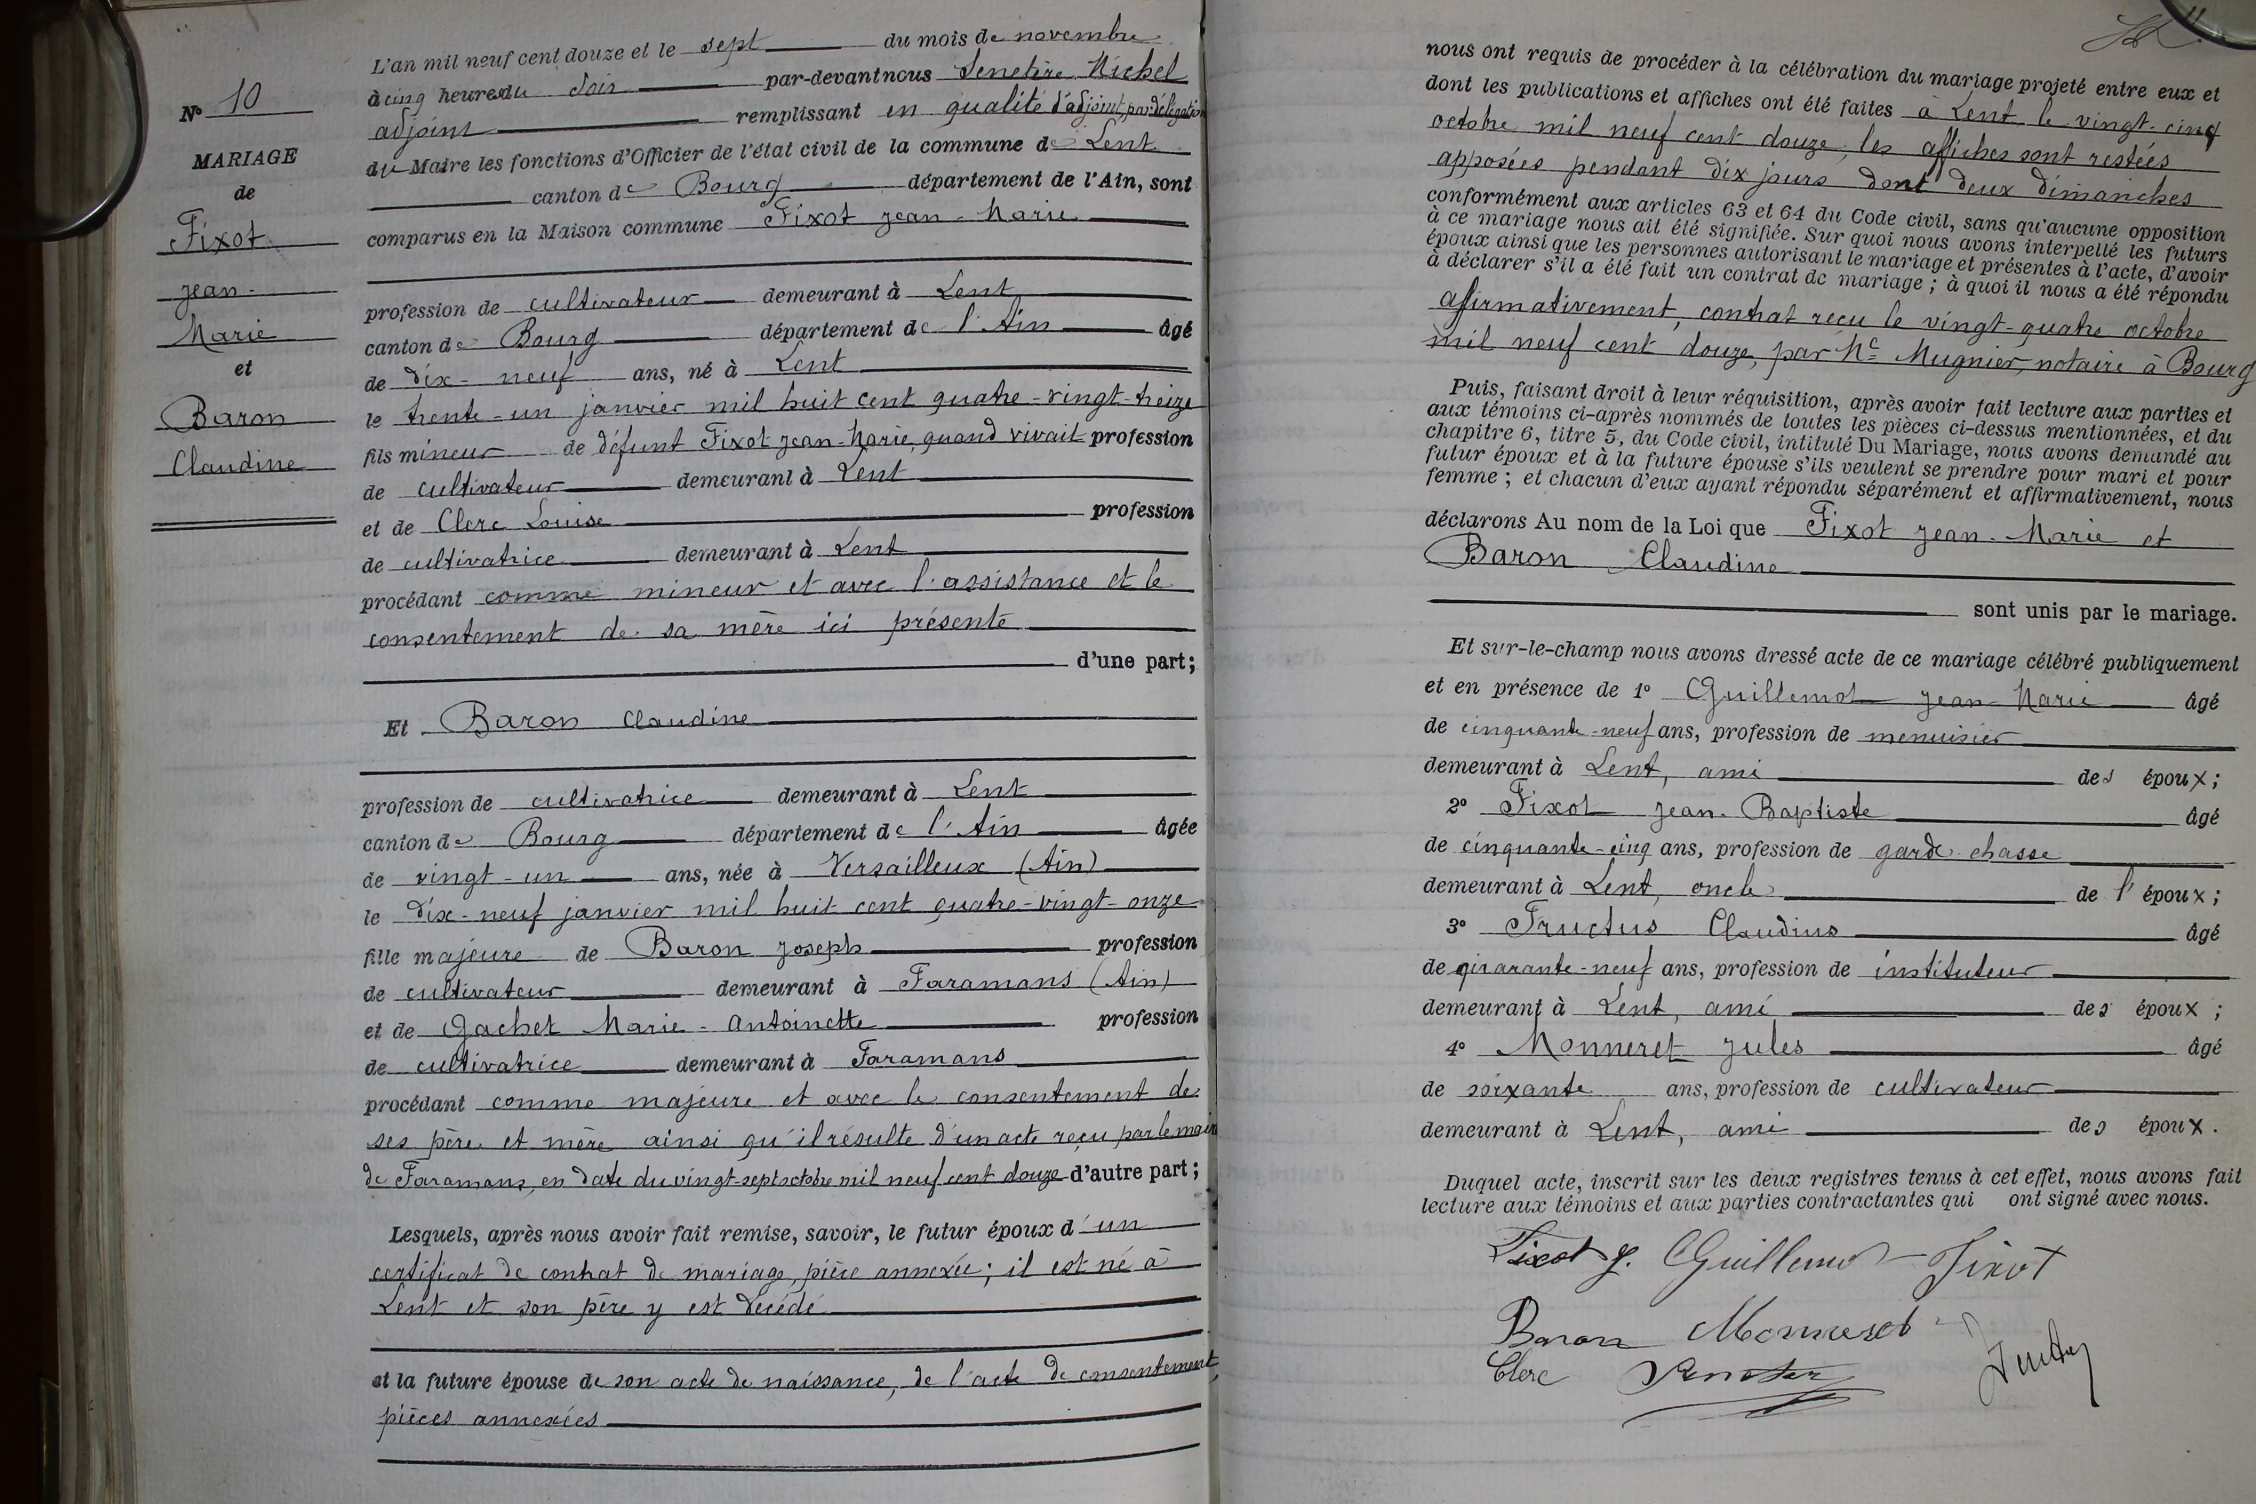 N° 10
MARIAGE
de
Fixot
Jean-
Marie
et
Baron
Claudine
L'an mil neuf cent douze et le sept du mois de novembre
à cinq heures du soir par-devant nous Senetère Michel
adjoint remplissant en qualité d'adjoint, par délégation
du Maire les fonctions d'Officier de l'état civil de la commune de Lent
canton de Bourg département de l'Ain, sont
comparus en la Maison commune Fixot Jean-Marie
profession de cultivateur demeurant à Lent
canton de Bourg département de l'Ain âgé
de dix-neuf ans, né à Lent
le trente-un janvier mil huit cent quatre-vingt-treize
fils mineur de défunt Fixot Jean-Marie, quand vivait profession
de cultivateur demeurant à Lent
et de Clerc Louise profession
de cultivatrice demeurant à Lent
procédant comme mineur et avec l'assistance et le
consentement de sa mère ici présente
d'une part;
Et Baron Claudine
profession de cultivatrice demeurant à Lent
canton de Bourg département de l'Ain âgée
de vingt-un ans, née à Versailleux (Ain)
le dix-neuf janvier mil huit cent quatre-vingt-onze
fille majeure de Baron Joseph profession
de cultivateur demeurant à Faramans (Ain)
et de Gachet Marie-Antoinette profession
de cultivatrice demeurant à Faramans
procédant comme majeure et avec le consentement de
ses père et mère ainsi qu'il résulte d'un acte reçu par le maire
de Faramans, en date du vingt-sept octobre mil neuf cent douze d'autre part;
Lesquels, après nous avoir fait remise, savoir, le futur époux d'un
certificat de contrat de mariage, pièce annexée; il est né à
Lent et son père y est décédé
et la future épouse de son acte de naissance, de l'acte de consentement,
pièces annexées
nous ont requis de procéder à la célébration du mariage projeté entre eux et
dont les publications et affiches ont été faites à Lent le vingt-cinq
octobre mil neuf cent douze, les affiches sont restées
apposées pendant dix jours dont deux dimanches
conformément aux articles 63 et 64 du Code civil, sans qu'aucune opposition
à ce mariage nous ait été signifiée. Sur quoi nous avons interpellé les futurs
époux ainsi que les personnes autorisant le mariage et présentes à l'acte, d'avoir
à déclarer s'il a été fait un contrat de mariage; à quoi il nous a été répondu
affirmativement, contrat reçu le vingt-quatre octobre
mil neuf cent douze, par Me Mugnier, notaire à Bourg
Puis, faisant droit à leur réquisition, après avoir fait lecture aux parties et
aux témoins ci-après nommés de toutes les pièces ci-dessus mentionnées, et du
chapitre 6, titre 5, du Code civil, intitulé Du Mariage, nous avons demandé au
futur époux et à la future épouse s'ils veulent se prendre pour mari et pour
femme; et chacun d'eux ayant répondu séparément et affirmativement, nous
déclarons Au nom de la Loi que Fixot Jean-Marie et
Baron Claudine
sont unis par le mariage.
Et sur-le-champ nous avons dressé acte de ce mariage célébré publiquement
et en présence de 1° Guillemot Jean-Marie âgé
de cinquante-neuf ans, profession de menuisier
demeurant à Lent, ami des époux;
2° Fixot Jean-Baptiste âgé
de cinquante-cinq ans, profession de garde-chasse
demeurant à Lent, oncle de l'époux;
3° Fructus Claudius âgé
de quarante-neuf ans, profession de instituteur
demeurant à Lent, ami des époux;
4° Monneret Jules âgé
de soixante ans, profession de cultivateur
demeurant à Lent, ami des époux.
Duquel acte, inscrit sur les deux registres tenus à cet effet, nous avons fait
lecture aux témoins et aux parties contractantes qui ont signé avec nous.
Fixot J. Guillemot Fixot
Baron Monneret
Clerc